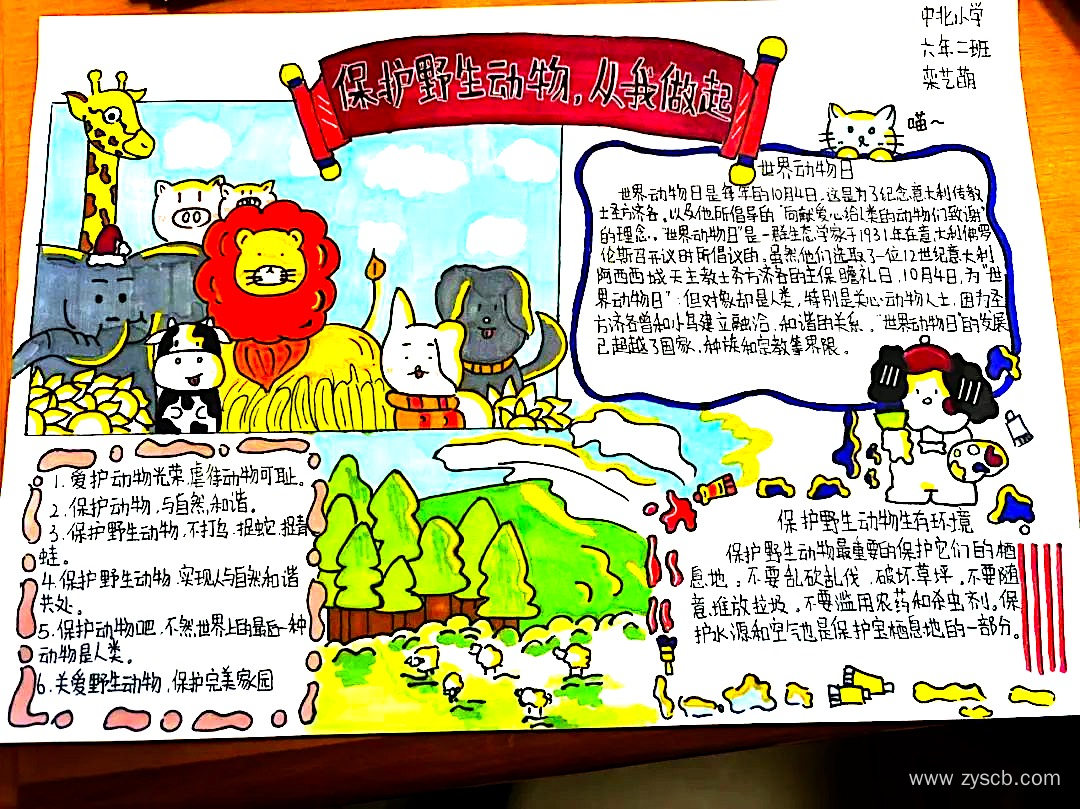 中北小学
六年二班
栾艺萌
保护野生动物,从我做起
喵~
世界动物日
世界动物日是每年的10月4日,这是为了纪念意大利传教
士圣方济各,以及他所倡导的“向献爱心给人类的动物们致谢”
的理念。“世界动物日”是一群生态学家于1931年在意大利佛罗
伦斯召开议时所倡议的,虽然他们选取了一位12世纪意大利
阿西西城天主教士圣方济各的主保瞻礼日,10月4日,为“世
界动物日”;但对象却是人类,特别是关心动物人士,因为圣
方济各曾和小鸟建立融洽、和谐的关系。“世界动物日”的发展
已超越了国家、种族和宗教等界限。
1.爱护动物光荣,虐待动物可耻。
2.保护动物,与自然,和谐。
3.保护野生动物,不打鸟,捉蛇,捉青
蛙。
4.保护野生动物,实现人与自然和谐
共处。
5.保护动物吧,不然世界上的最后一种
动物是人类。
6.关爱野生动物,保护完美家园
保护野生动物生有环境
保护野生动物最重要的保护它们的栖
息地。不要乱砍乱伐、破坏草坪。不要随
意堆放垃圾。不要滥用农药和杀虫剂。保
护水源和空气也是保护宝栖息地的一部分。
www.zyscb.com